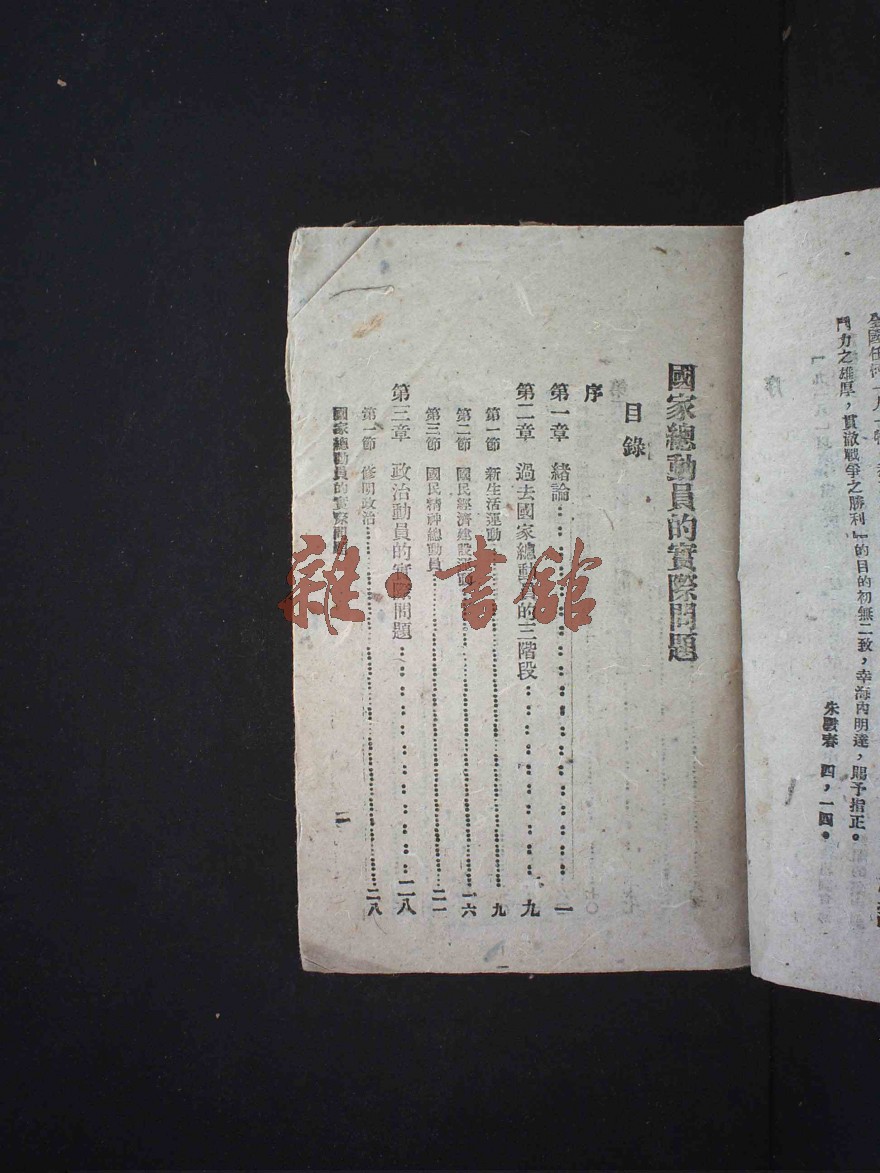 門力之雄厚，貫澈戰爭之勝利」的目的初無二致，幸海內明達，賜予指正。
朱 春 四，一四。
國家總動員的實際問題
目錄
序
第一章 緒論 一
第二章 過去國家總動員的三階段 九
第一節 新生活運動 九
第二節 國民經濟建設運動 一六
第三節 國民精神總動員 二一
第三章 政治動員的實際問題 二八
第一節 修明政治 二八
國家總動員的實際問題
一
雜·書館